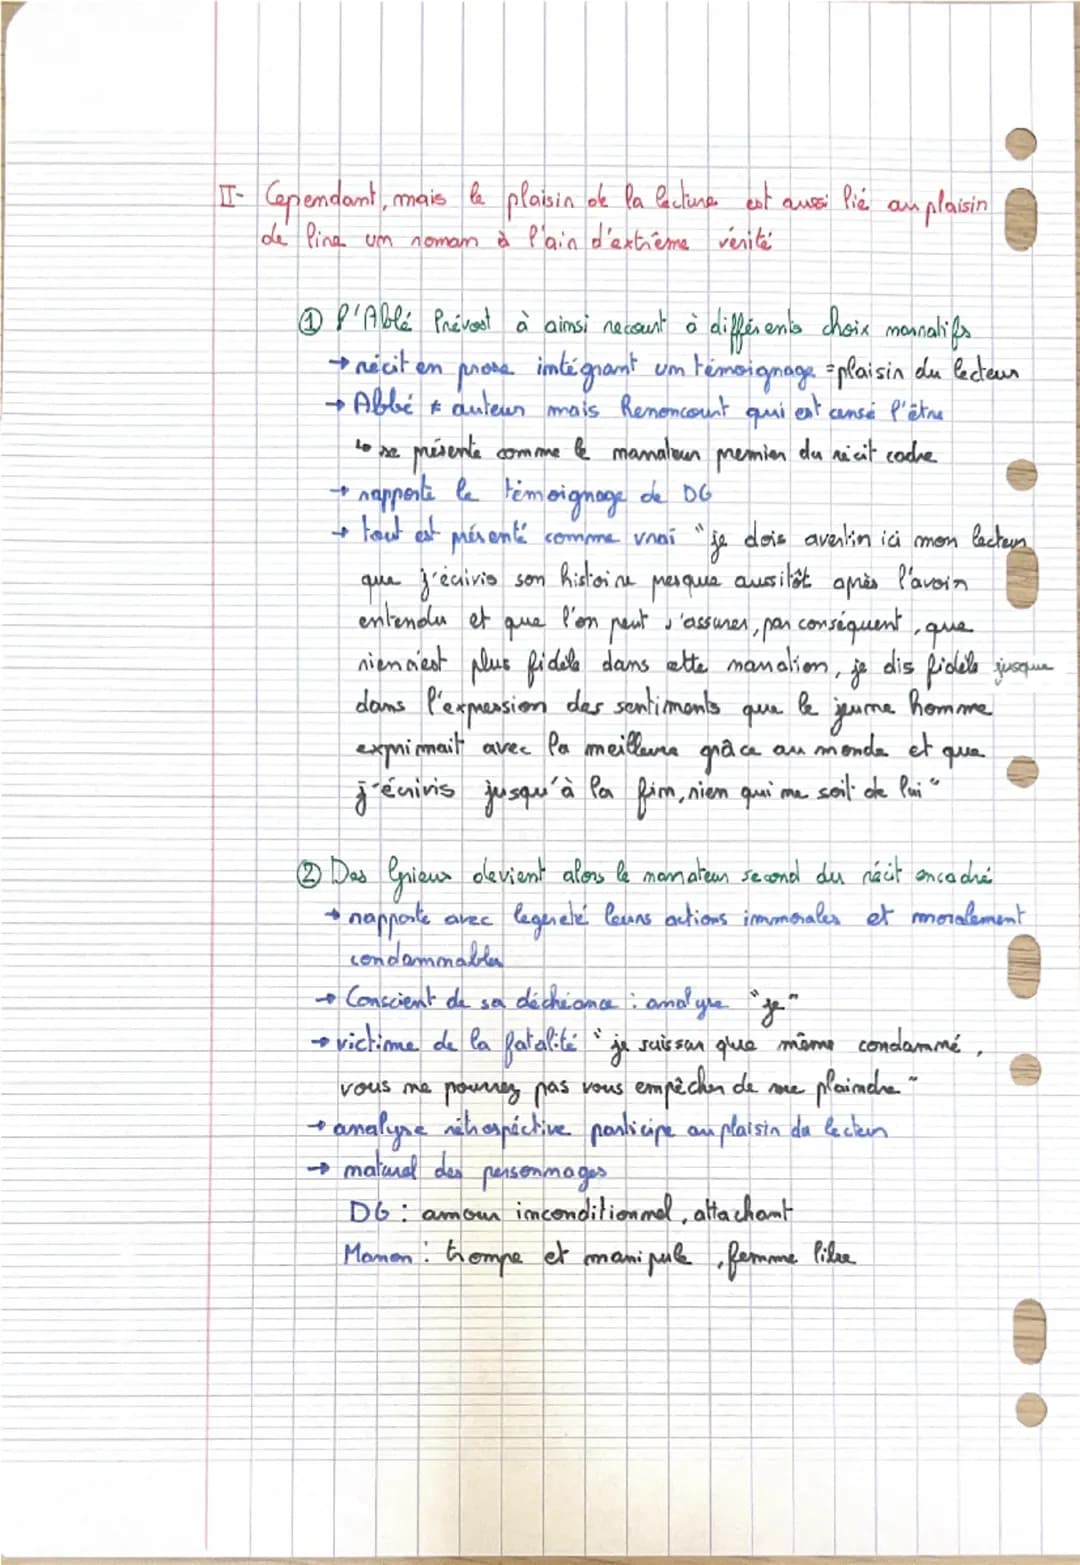 II- Cependant, mais le plaisir de la lecture est aussi lié au plaisir
de lire un roman à l'air d'extrême vérité
① l'Abbé Prévost à ainsi recourt à différents choix narratifs
→ récit en prose intégrant un témoignage = plaisir du lecteur
→ Abbé ≠ auteur mais Renoncourt qui est censé l'être
↳ se présente comme le narrateur premier du récit cadre
→ rapporte le témoignage de DG
→ tout est présenté comme vrai "je dois avertir ici mon lecteur
que j'écrivis son histoire presque aussitôt après l'avoir
entendu et que l'on peut s'assurer, par conséquent, que
rien n'est plus fidèle dans cette narration, je dis fidèle jusque
dans l'expression des sentiments que le jeune homme
exprimait avec la meilleure grâce au monde et que
j'écrivis jusqu'à la fin, rien qui ne soit de lui"
② Des Grieux devient alors le narrateur second du récit encadré
→ rapporte avec legereté leurs actions immorales et moralement
condammables
→ Conscient de sa déchéance : analyse "je"
→ victime de la fatalité "je suis sur que même condammé,
vous ne pourrez pas vous empêcher de me plaindre"
→ analyse rétrospéctive participe au plaisir du lecteur
→ naturel des personnages
DG : amour inconditionnel, attachant
Manon : trompe et manipule, femme libre